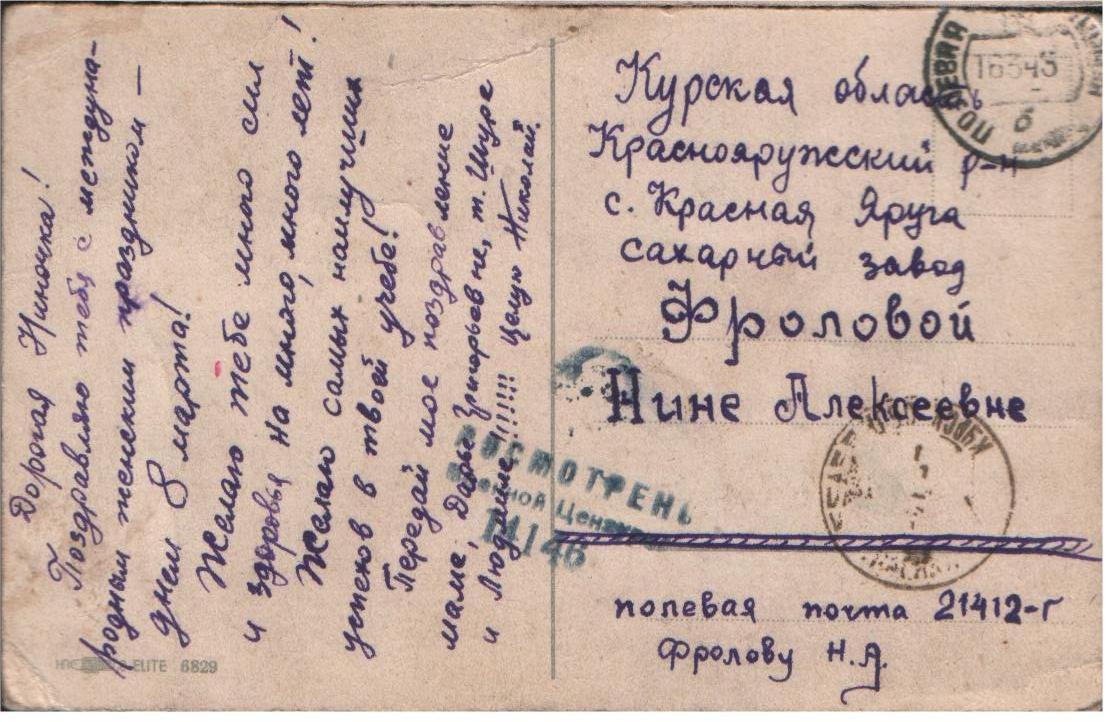 Дорогая Ниночка!
Поздравляю тебя с междуна-
родным женским праздником –
днем 8 марта!
Желаю тебе много сил
и здоровья на много, много лет!
Желаю самых наилучших
успехов в твоей учебе!
Передай мое поздравление
маме, Дарье Григорьевне, т. Шуре
и Людмиле!!!!!! Целую Николай.
ELITE 6829
Курская область
Краснояружсский р-н
с. Красная Яруга
сахарный завод
Фроловой
Нине Алексеевне
полевая почта 21412-г
Фролову Н.А.
ПОЛЕВАЯ
16345
б
ПРОСМОТРЕНО
Военной Цензурой